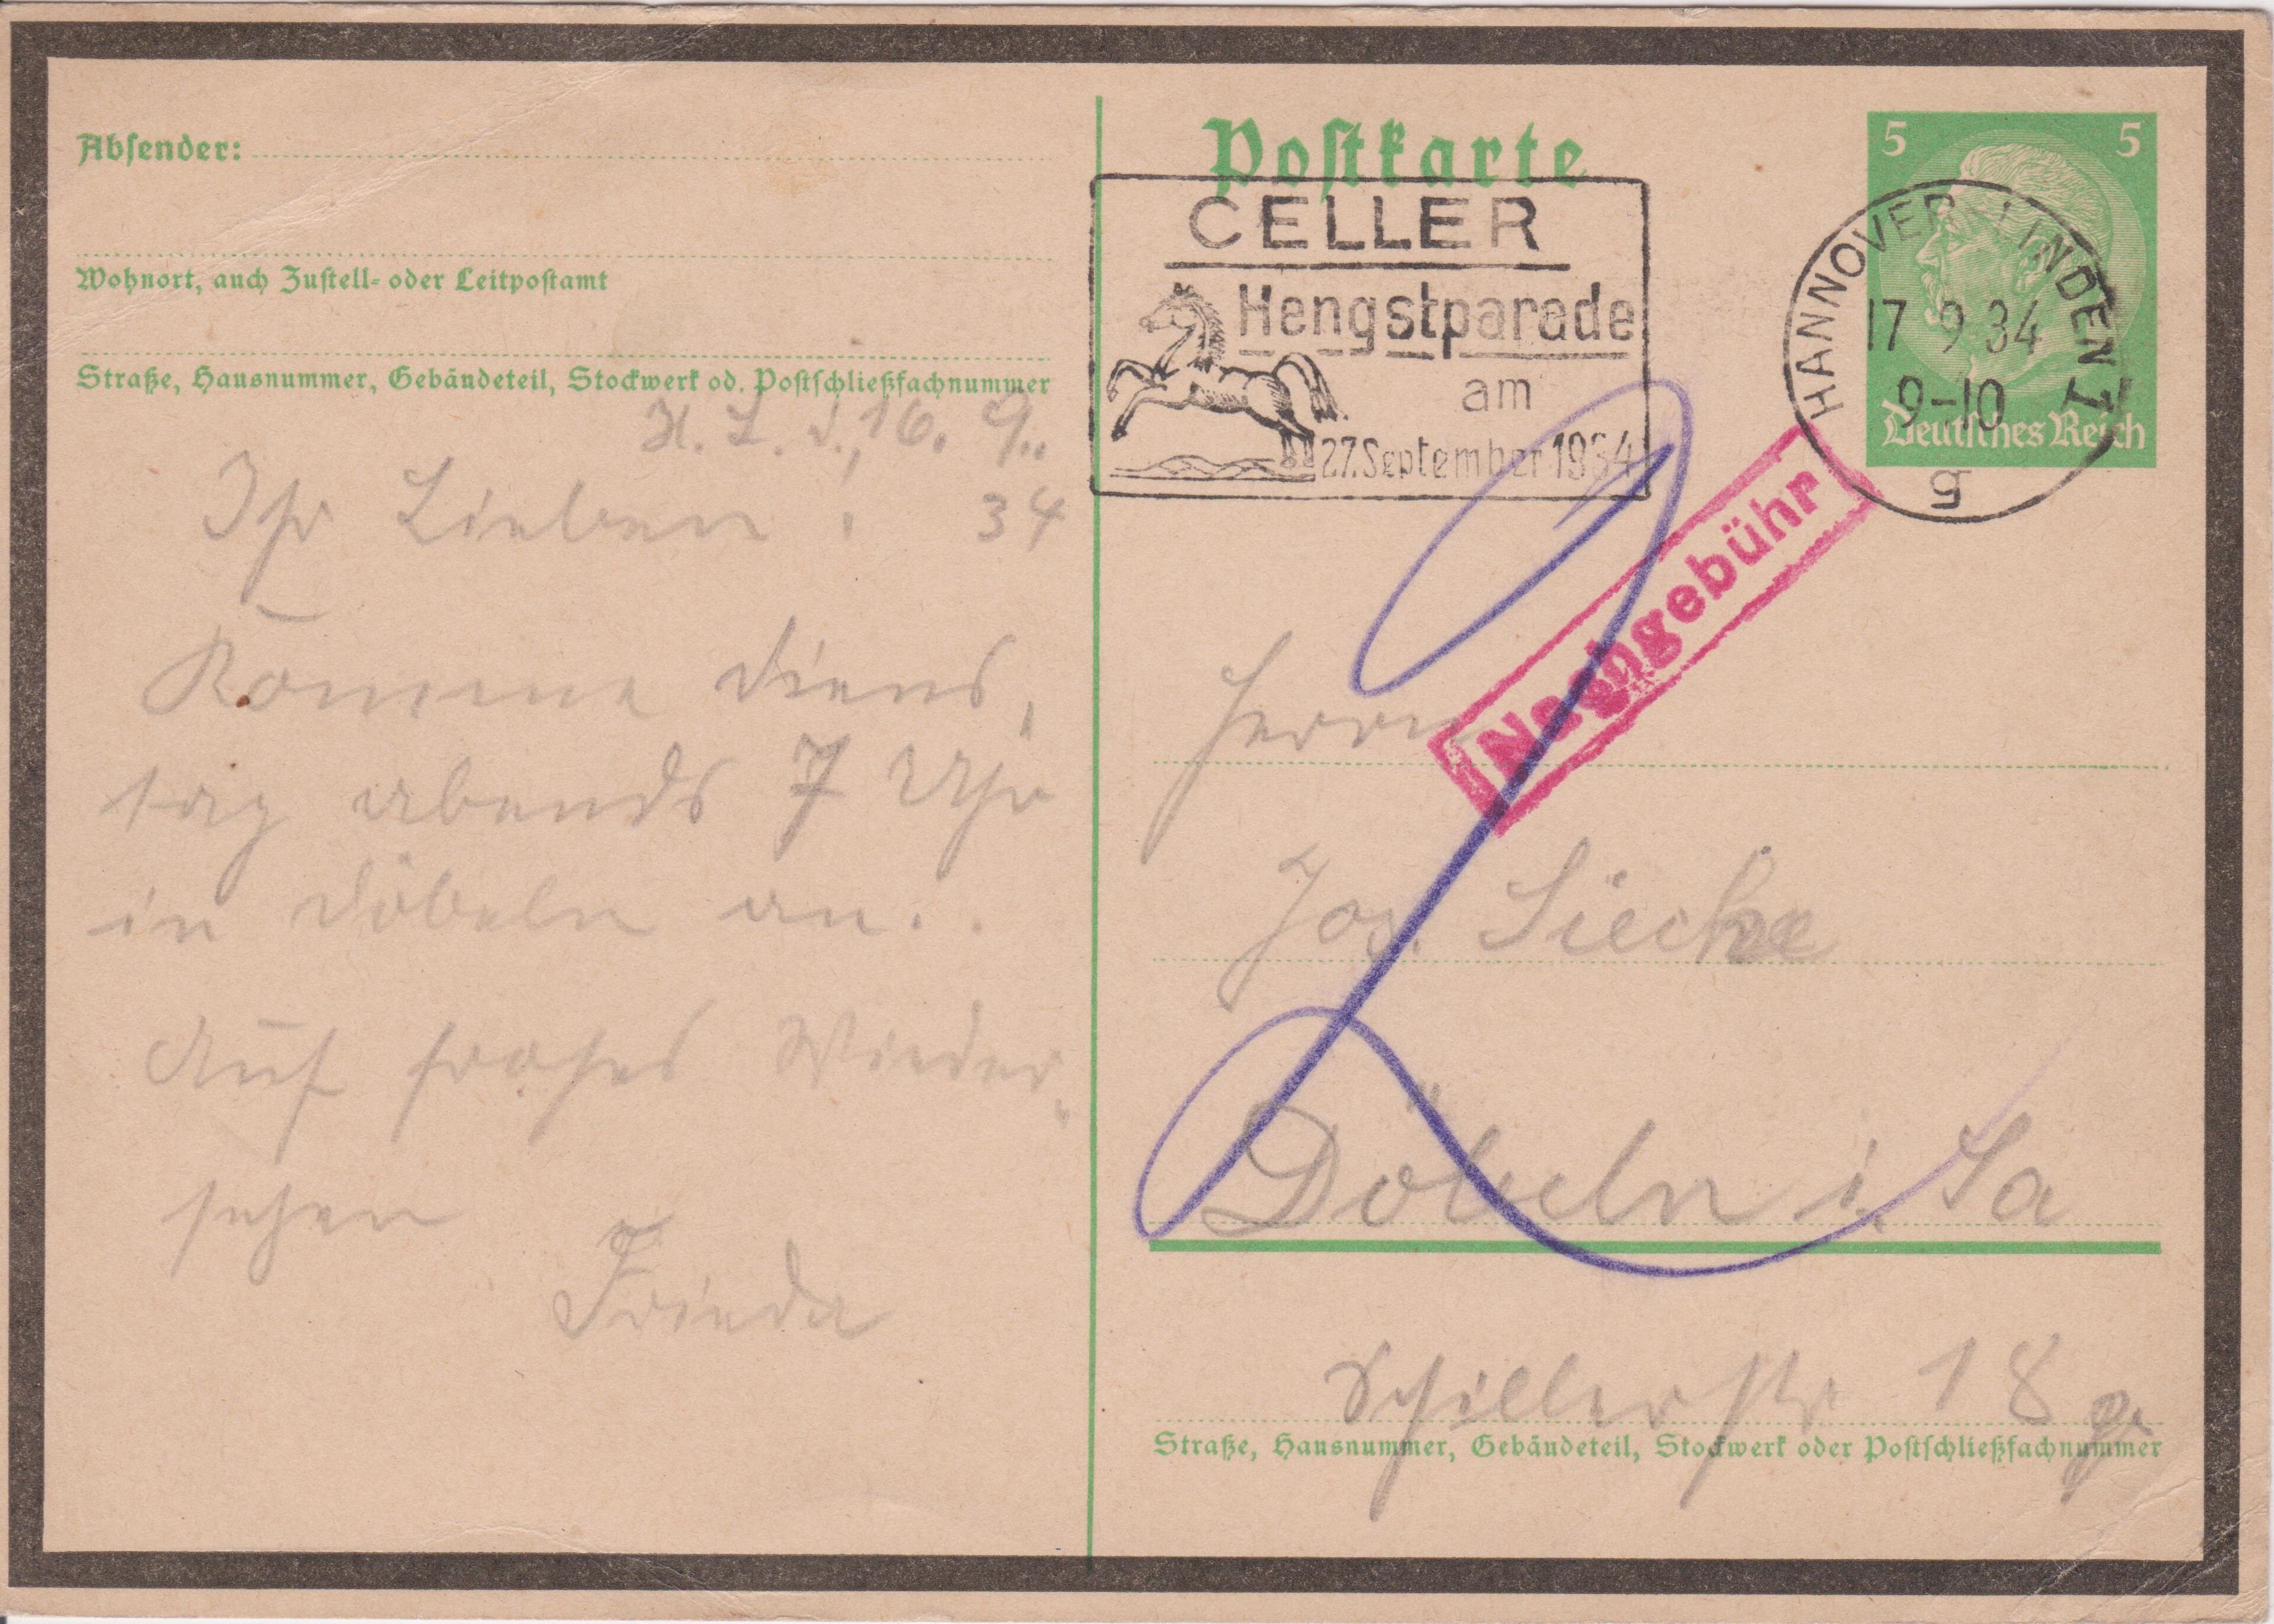 Absender:
Wohnort, auch Zustell- oder Leitpostamt
Straße, Hausnummer, Gebäudeteil, Stockwerk od. Postschließfachnummer
H. L. d. 16. 9.
34
Ihr Lieben!
Komme Diens-
tag abends 7 Uhr
in Döbeln an.
Auf frohes Wieder-
sehen
Frieda
Postkarte
CELLER
Hengstparade
am
27. September 1934
5 5
Deutsches Reich
HANNOVER-LINDEN 1
17 9 34
9-10
g
Nachgebühr
Herrn
Jos. Siecke
Döbeln i. Sa
Schillerstr 18
Straße, Hausnummer, Gebäudeteil, Stockwerk oder Postschließfachnummer